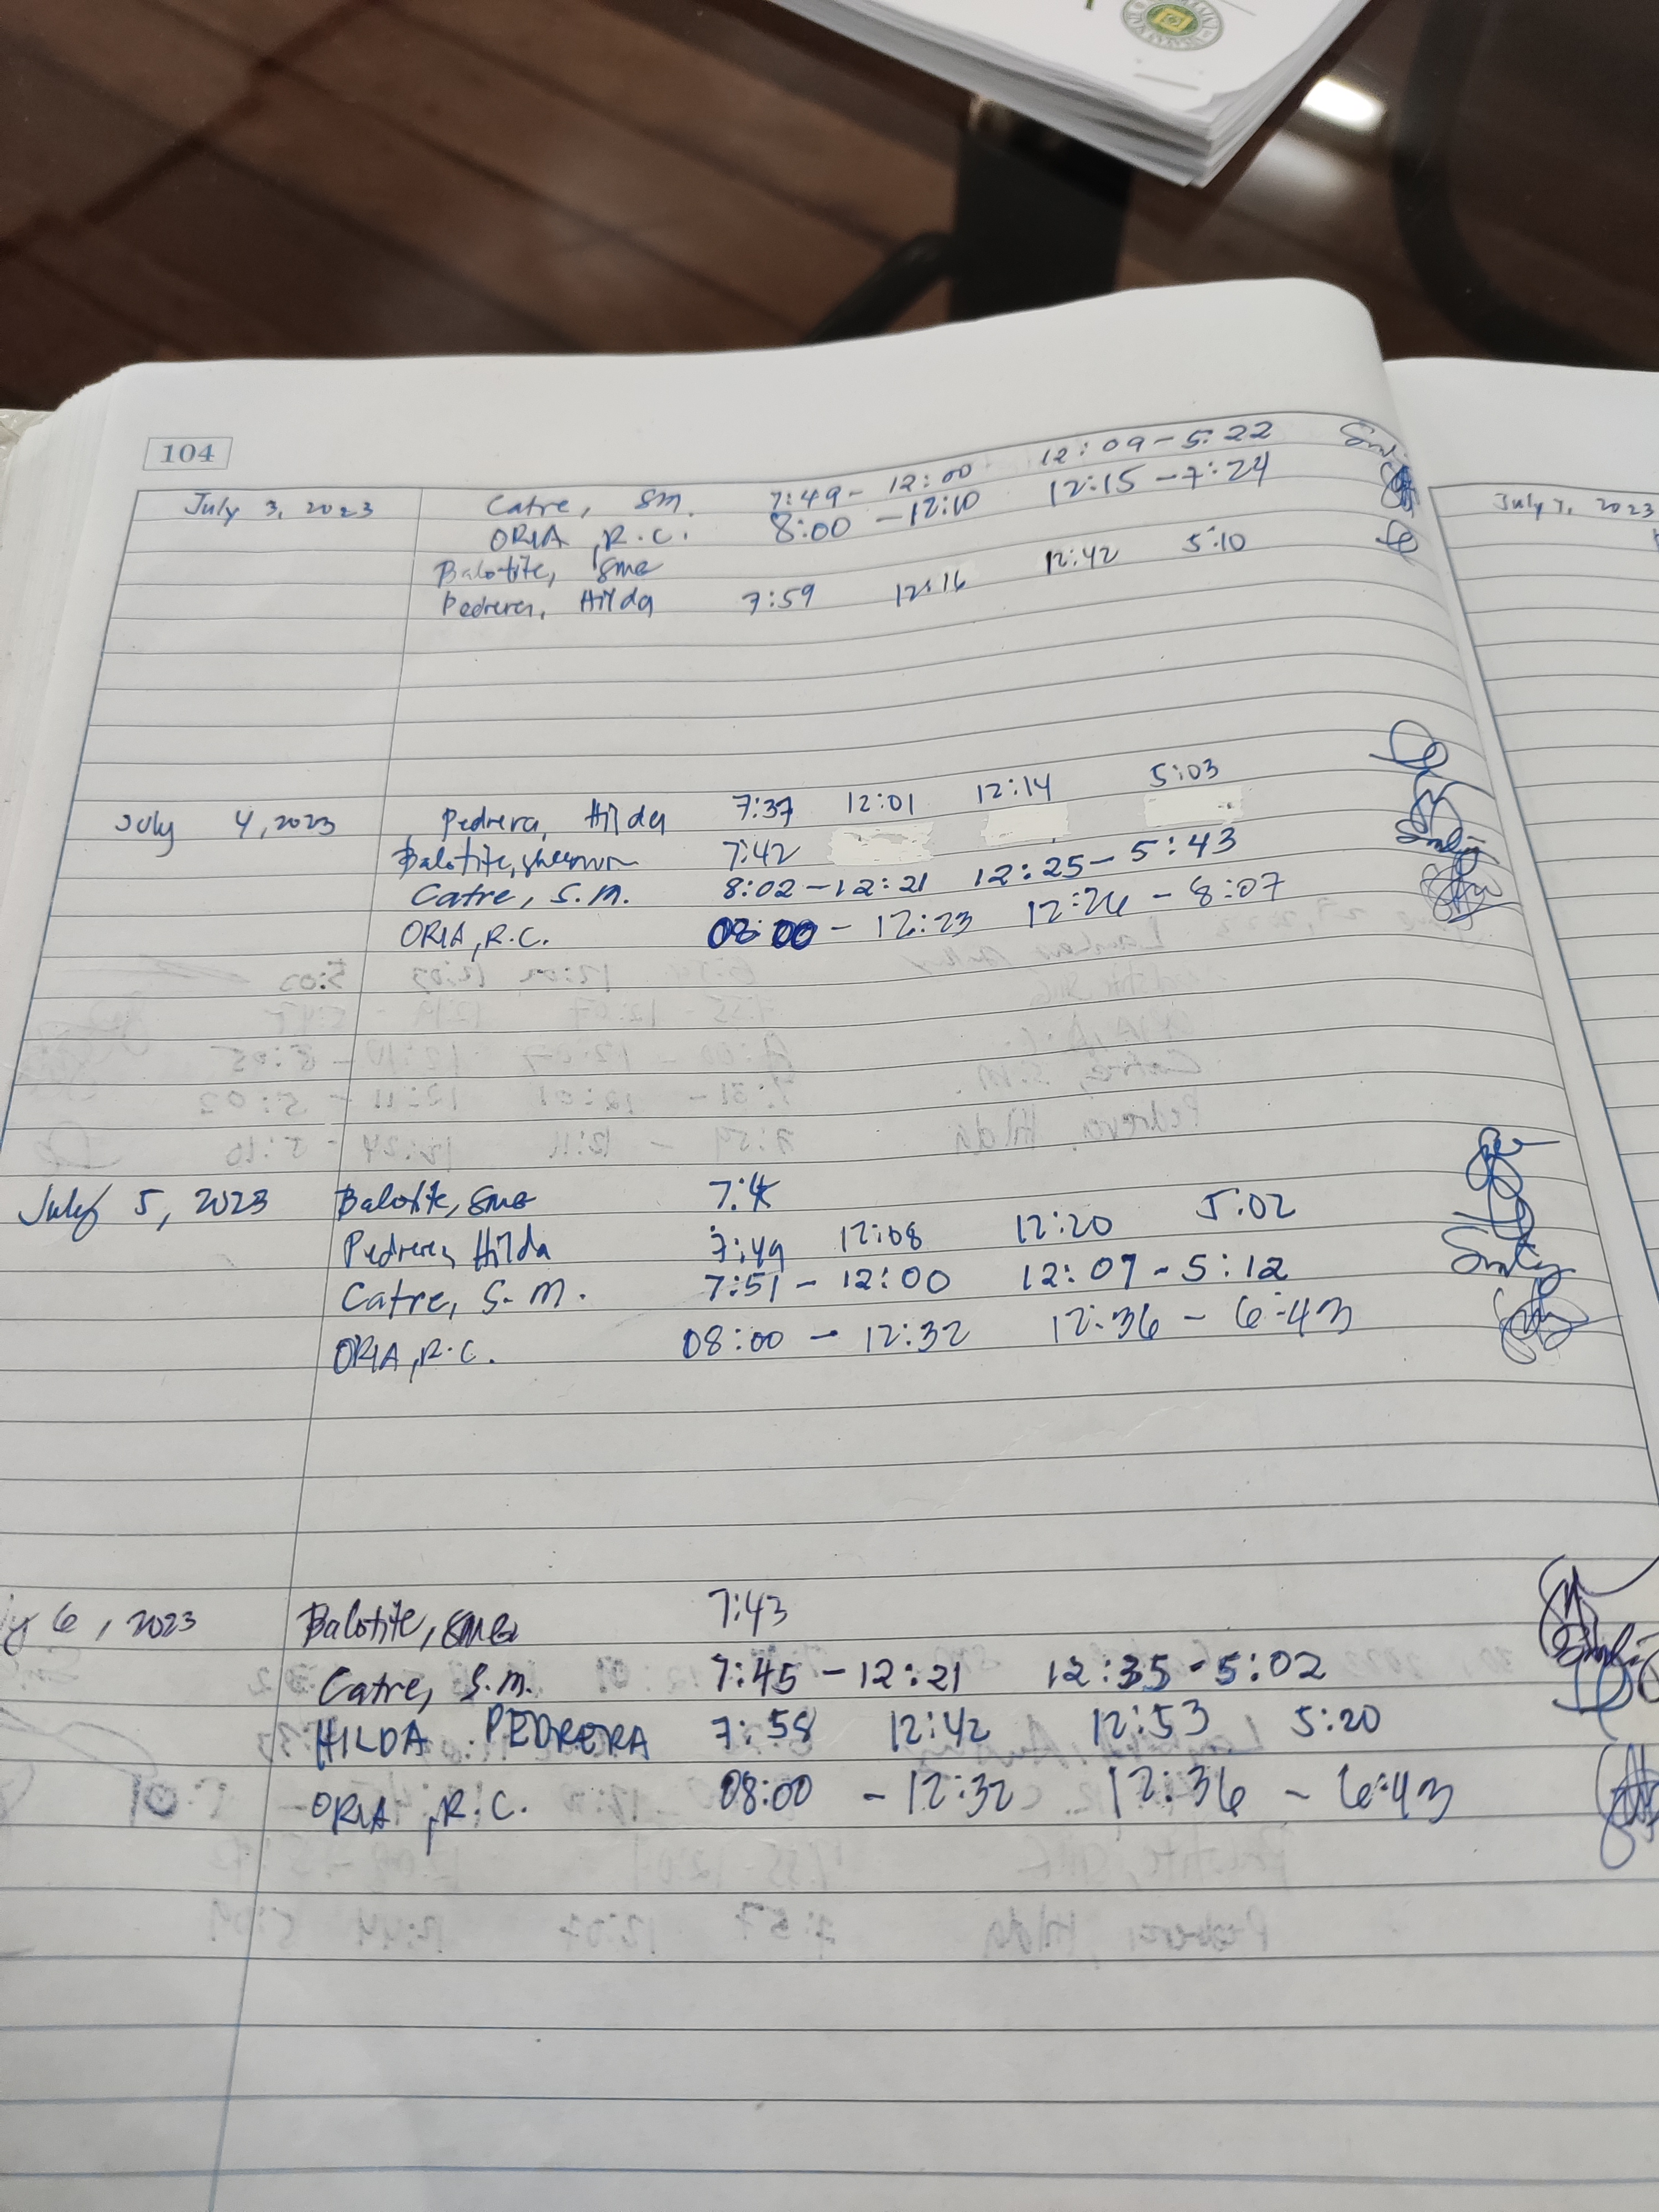 104
July 3, 2023 Catre, SM. 7:49 - 12:00 12:09 - 5:22
ORIA, R.C. 8:00 - 12:10 12:15 - 7:24
Balotite, SMG
Pedrera, Hilda 7:59 12:16 12:42 5:10
July 4, 2023 Pedrera, Hilda 7:37 12:01 12:14 5:03
Balotite, 7:42
Catre, S.M. 8:02 - 12:21 12:25 - 5:43
ORIA, R.C. 08:00 - 12:23 12:26 - 8:07
July 5, 2023 Balotite, SMG
Pedrera, Hilda 7:49 12:08 12:20 5:02
Catre, S.M. 7:51 - 12:00 12:09 - 5:12
ORIA, R.C. 08:00 - 12:32 12:36 - 6:43
ly 6, 2023 Balotite, SMG 7:43
Catre, S.M. 7:45 - 12:21 12:35 - 5:02
HILDA PEDRERA 7:58 12:42 12:53 5:20
ORIA, R.C. 08:00 - 12:32 12:36 - 6:43
July 7, 2023